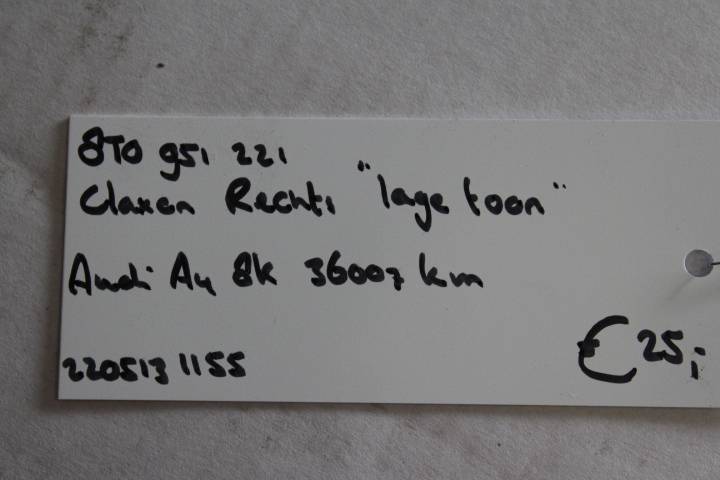 8T0 951 221
Claxon Rechts "lage toon"
Audi A4 8k 36007 km
2205131155
€ 25,-